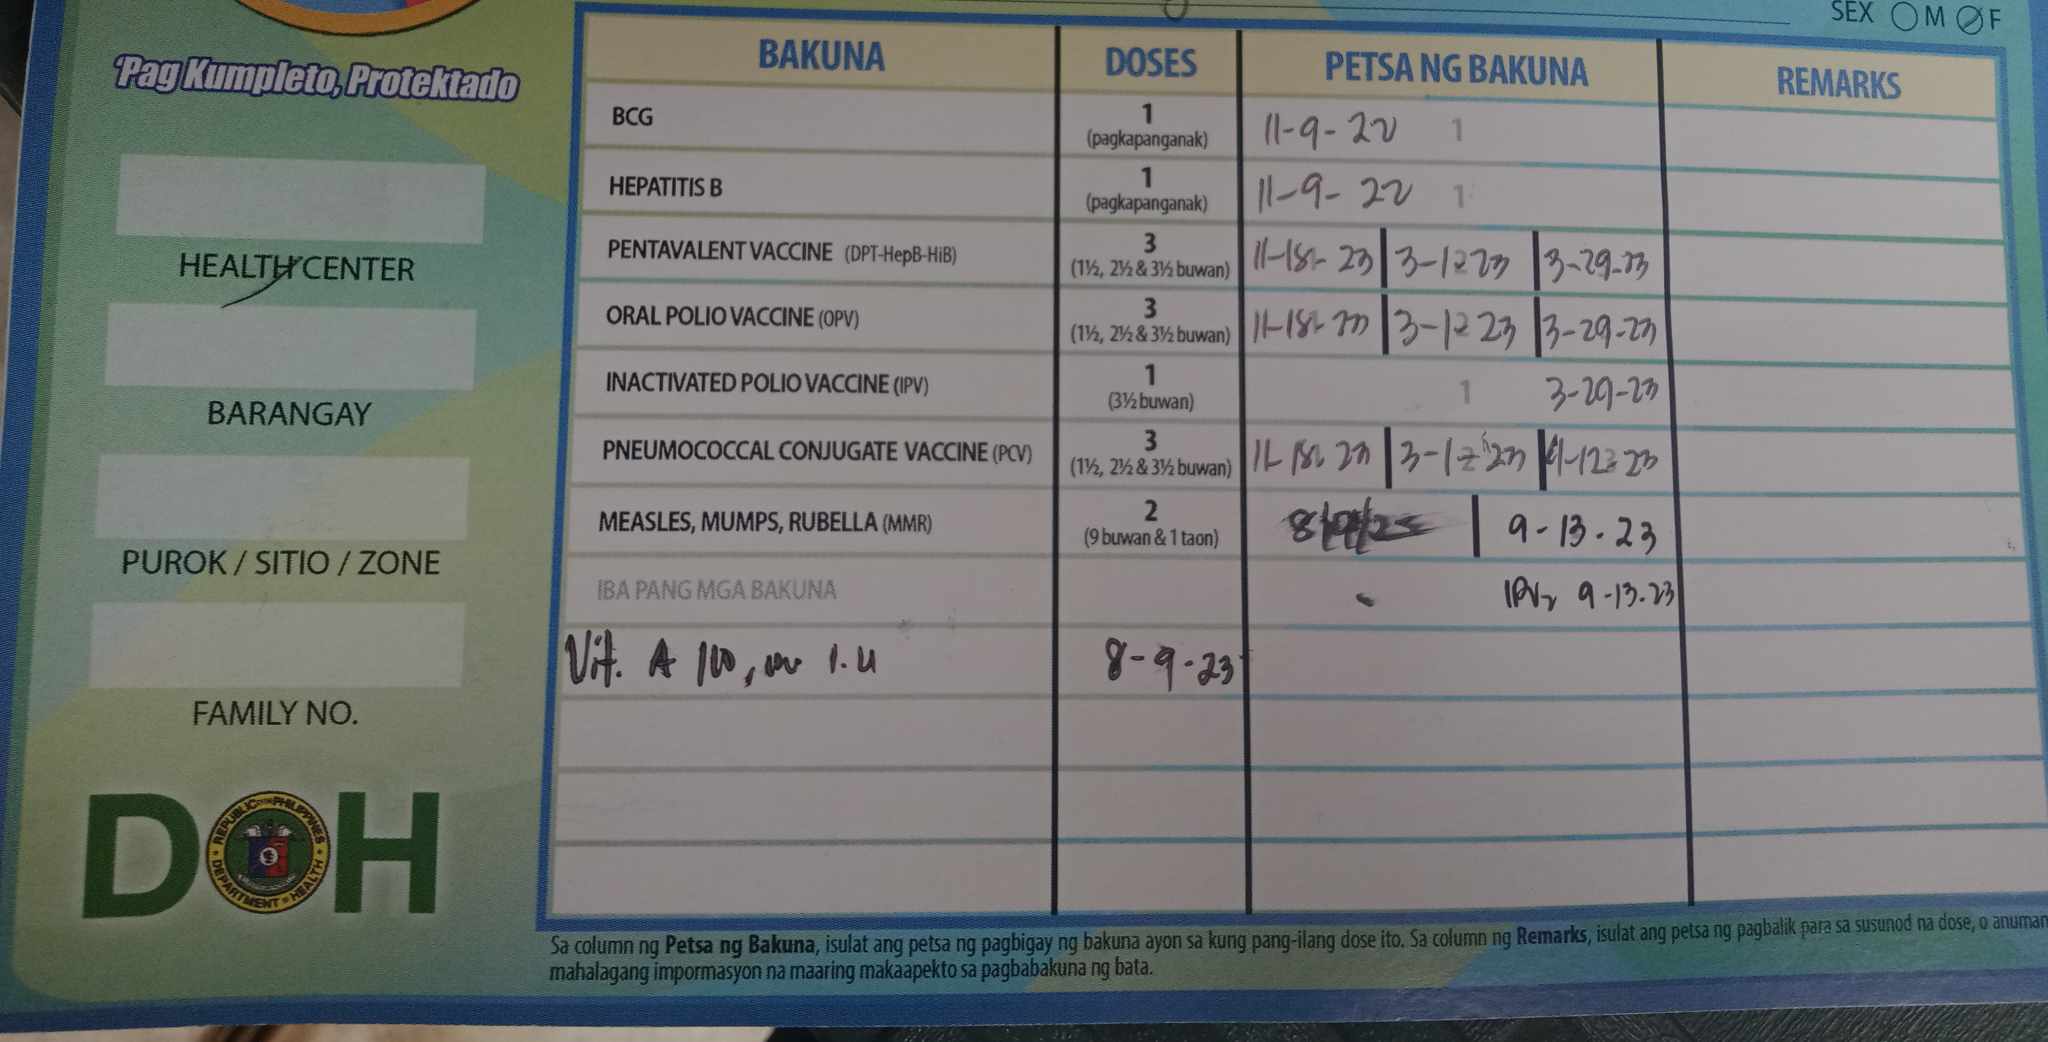 SEX M F
'Pag Kumpleto, Protektado
HEALTH CENTER
BARANGAY
PUROK / SITIO / ZONE
FAMILY NO.
DOH
REPUBLIC OF THE PHILIPPINES
DEPARTMENT OF HEALTH
BAKUNA DOSES PETSA NG BAKUNA REMARKS
BCG 1 (pagkapanganak) 11-9-22 1
HEPATITIS B 1 (pagkapanganak) 11-9-22 1
PENTAVALENT VACCINE (DPT-HepB-HiB) 3 (1½, 2½ & 3½ buwan) 23 3-1223 3-29-23
ORAL POLIO VACCINE (OPV) 3 (1½, 2½ & 3½ buwan) 3-1223 3-29-23
INACTIVATED POLIO VACCINE (IPV) 1 (3½ buwan) 1 3-29-23
PNEUMOCOCCAL CONJUGATE VACCINE (PCV) 3 (1½, 2½ & 3½ buwan)
MEASLES, MUMPS, RUBELLA (MMR) 2 (9 buwan & 1 taon) 9-13-23
IBA PANG MGA BAKUNA 9-13-23
Vit. A I.U 8-9-23
Sa column ng Petsa ng Bakuna, isulat ang petsa ng pagbigay ng bakuna ayon sa kung pang-ilang dose ito. Sa column ng Remarks, isulat ang petsa ng pagbalik para sa susunod na dose, o anuman
mahalagang impormasyon na maaring makaapekto sa pagbabakuna ng bata.